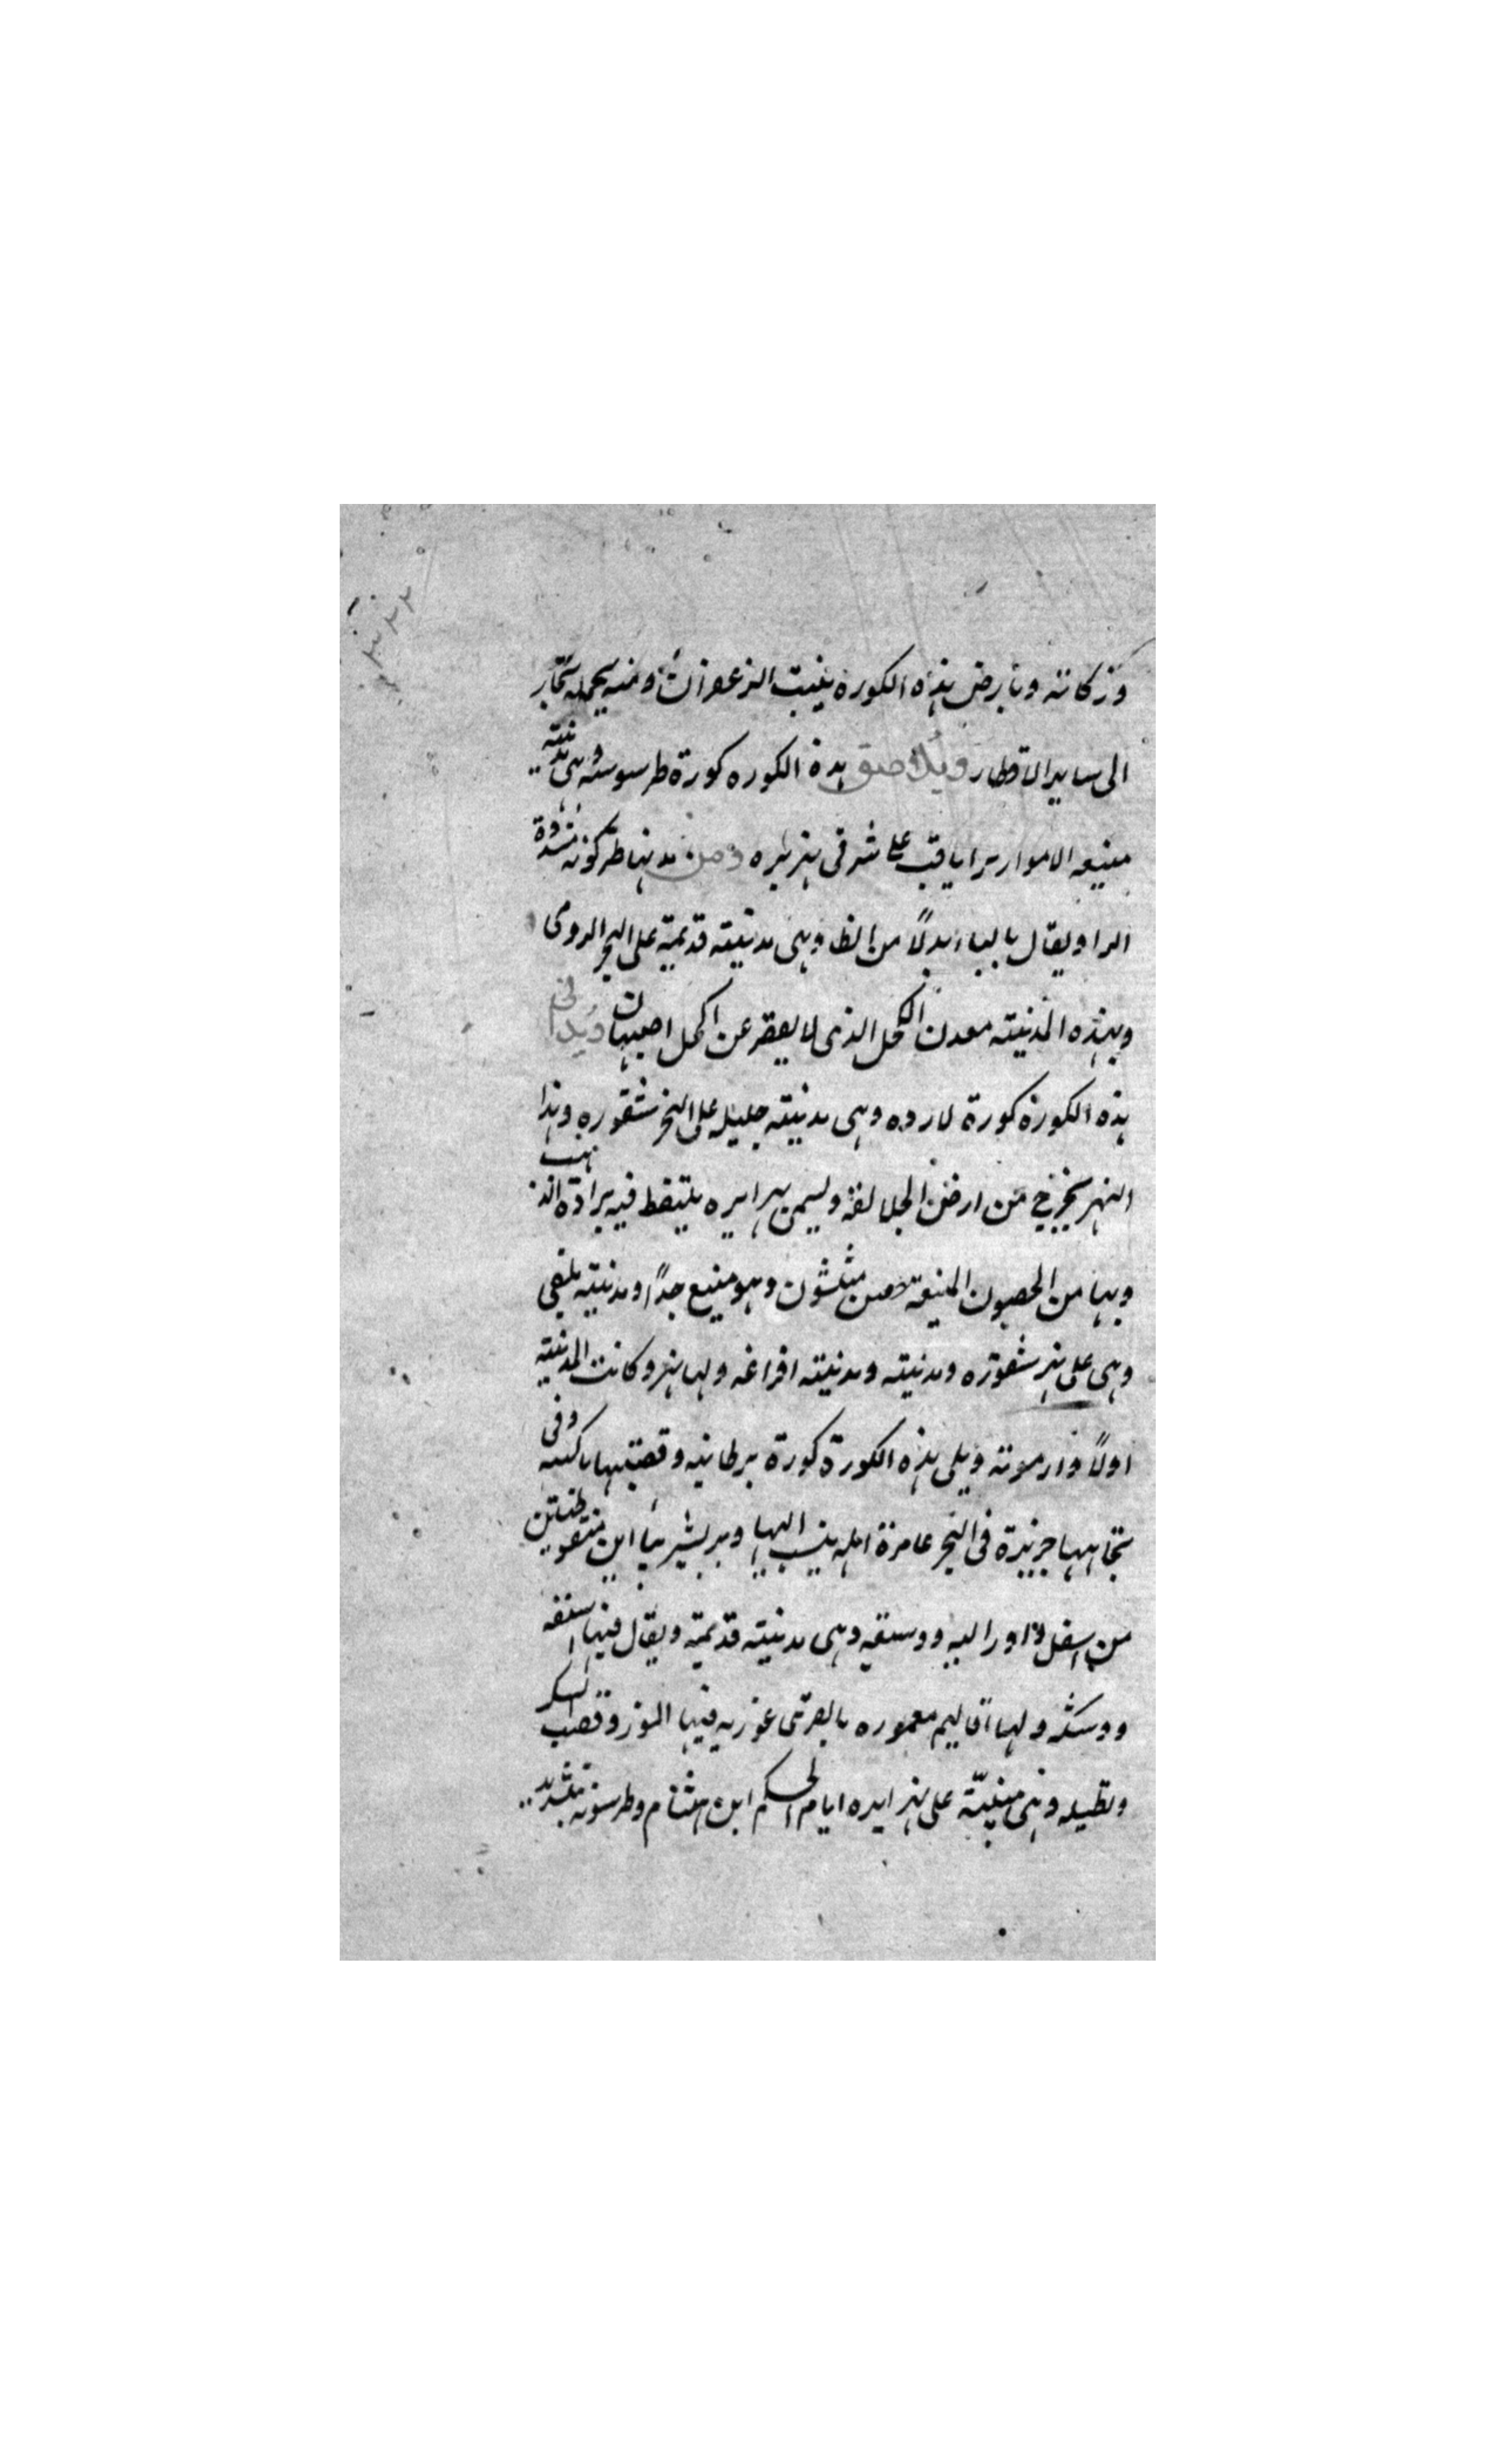 وزكاته وبارض هذه الكورة ينبت الزعفران ومنه يحمله تجار
الى ساير الاقطار ويلاصق هذه الكوره كورة طرسوسه وهى مدينته
منيعه الاسوار على شرقى نهر بره ومن مدنها طركونه مشددة
الرا ويقال بالباء بدلاً من الطا وهى مدينته قديمة على البحر الرومى
وبهذه المدينته معدن الكحل الذى لا يقصر عن اكحل اصبهان ويدانى
هذه الكورة كورة لارده وهى مدينته جليله على النهر شقوره وهذا
النهر يخرج من ارض الجلالقة وليمن نهر ابره يلتقط فيه برادة الذهب
وبها من الحصون المنيعة حصن مثلشون وهو منيع جداً ومدينته بلقى
وهى على نهر شقوره ومدينته ومدينته افراغه ولها نهر وكانت المدينته
اولاً وارمونه ويلى هذه الكورة كورة برطانيه وقصبتها باكسه وفى
تجاهها جزيرة فى البحر عامرة اهله ينسب اليها وبربشتر بنا ابن منقو طنتين
من اسفل واورالبه ووسقه وهى مدينته قديمة ويقال فيها استقه
ووسكه ولها اقاليم معموره بالقرى غزريه فيها الموز وقصب السكر
وتطيله وهى مبنيّة على نهر ابره ايام الحكم ابن هشام وطرسونه بتشديد